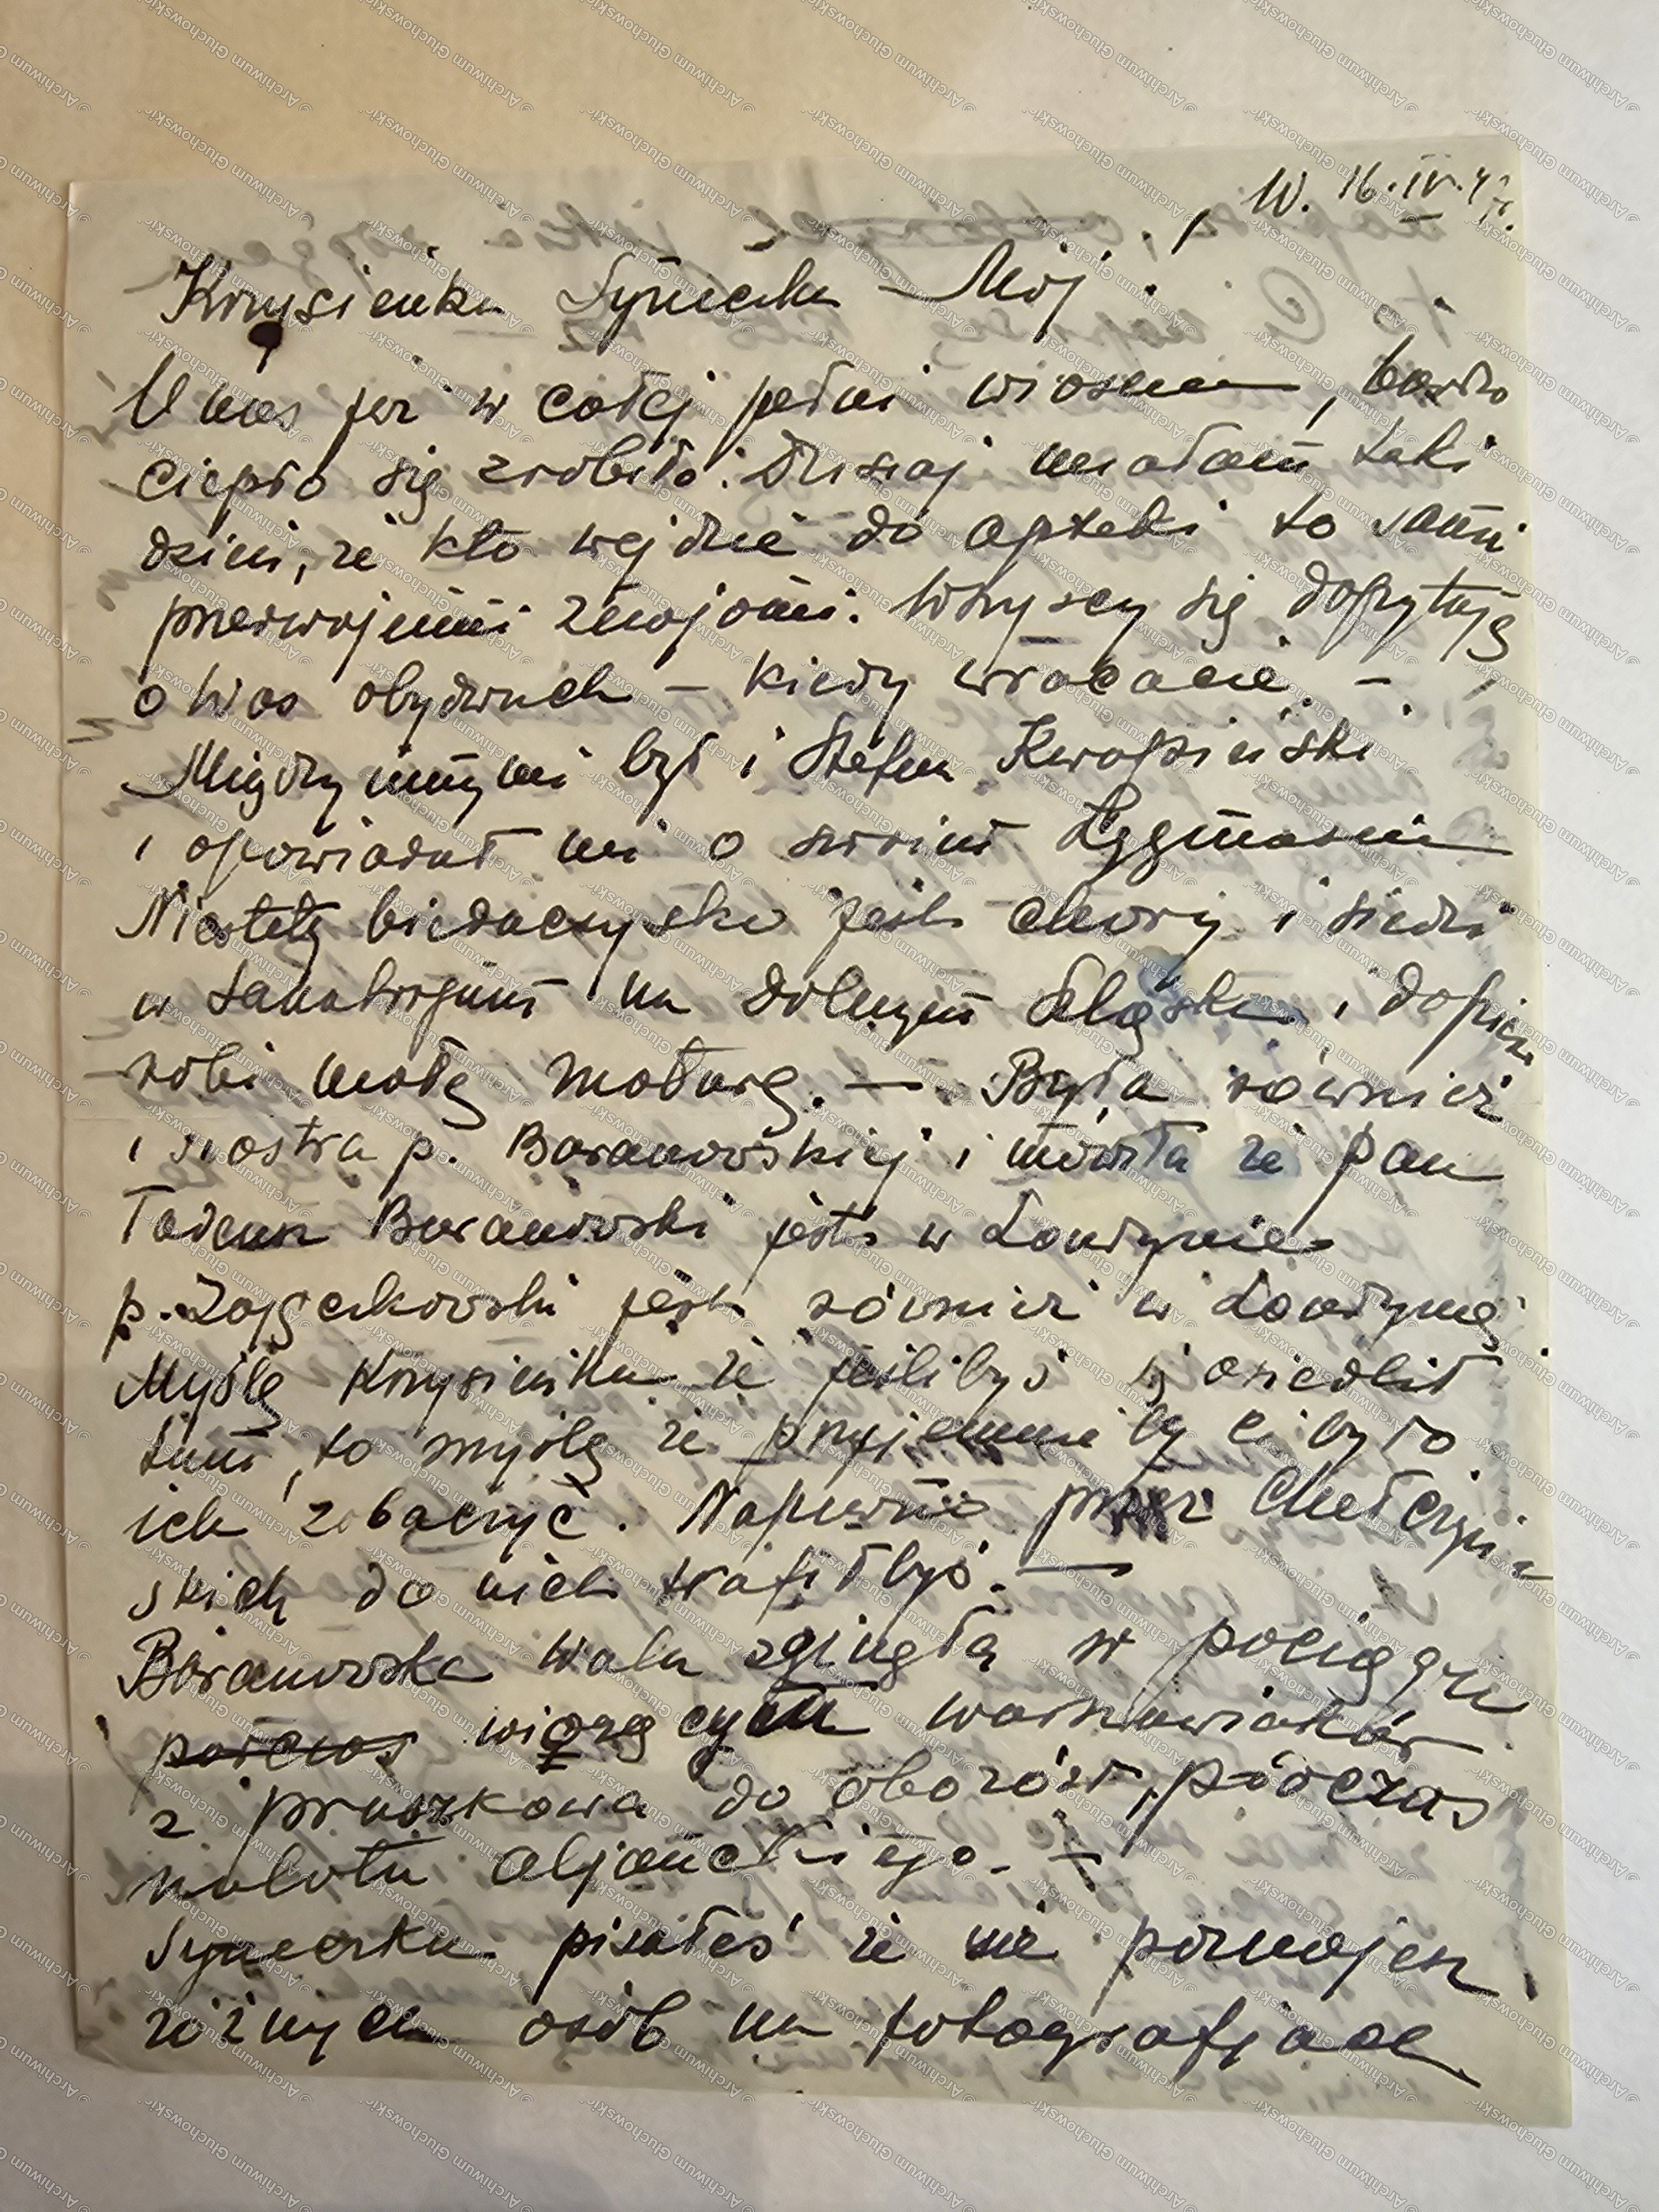 W. 16.IV.47.
Krzysieńku Syneczku Mój!
U nas już w całej pełni wiosna, bardzo
ciepło się zrobiło. Dzisiaj miałam taki
dzień, że kto wejdzie do apteki to sami
przedwojenni znajomi. Wszyscy się dopytują
o Was obydwuch – kiedy wracacie. –
Między innymi był i Stefan Kwapsiński
i opowiadał mi o swoim Zygmusiu
Niestety biedaczysko jest chory i siedzi
w sanatorjum na dolnym Śląsku i dopiero
robi małą maturę. — Była również
i siostra p. Baranowskiej i mówiła że pan
Tadeusz Baranowski jest w Londynie
p. Zajączkowski jest również w Londynie
Myślę Krzysieńku że jeślibyś się osiedlił
tam, to myślę że przyjemnie by ci było
ich zobaczyć. Napewno przez Chełczyń-
skich do nich trafiłbyś. —
Baranowska Wala zginęła w pociągu
podczas wiozącym warszawiaków
z pruszkowa do obozów, podczas
nalotu aljanckiego. –
Syneczku pisałeś że nie poznajesz
różnych osób na fotografjach
© Archiwum Głuchowski